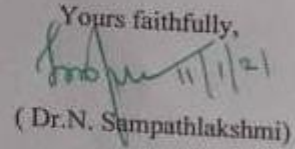 Yours faithfully,
11/1/21
( Dr.N. Sampathlakshmi)